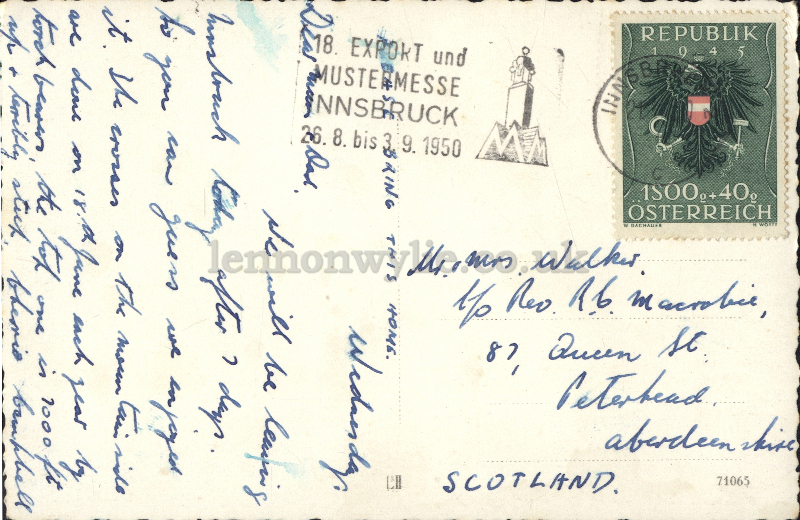 PLEASE BRING THIS HOME.
Wednesday.
Dear Mum & Dad,
We will be leaving
Innsbruck today after 7 days.
As you can guess we enjoyed
it. The crosses on the mountain side
are done on 18th June each year by
torch bearers, the top one is 7000 ft
up & terribly steep. Bernie Campbell
18. EXPORT und
MUSTERMESSE
INNSBRUCK
26.8. bis 3.9.1950
INNSBRUCK
REPUBLIK
1945
1S00g+40g
ÖSTERREICH
W. DACHAUER
H. WÖYTY
Mr. & Mrs. Walker.
c/o Rev. R.G. Macrobie,
87, Queen St.
Peterhead.
Aberdeenshire
SCOTLAND.
71065
lennonwylie.co.uk